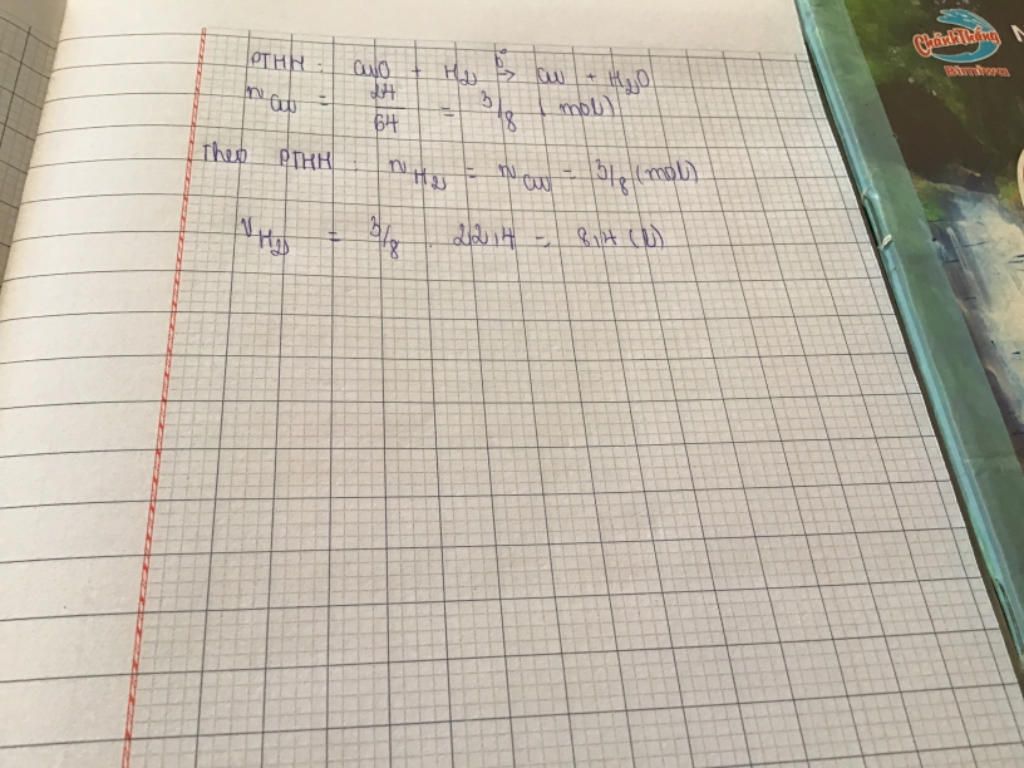 PTHH : CuO + H2 t° → Cu + H2O
nCu = 24/64 = 3/8 (mol)
Theo PTHH : nH2 = nCu = 3/8 (mol)
VH2 = 3/8 . 22,4 = 8,4 (l)
Chánh Thắng